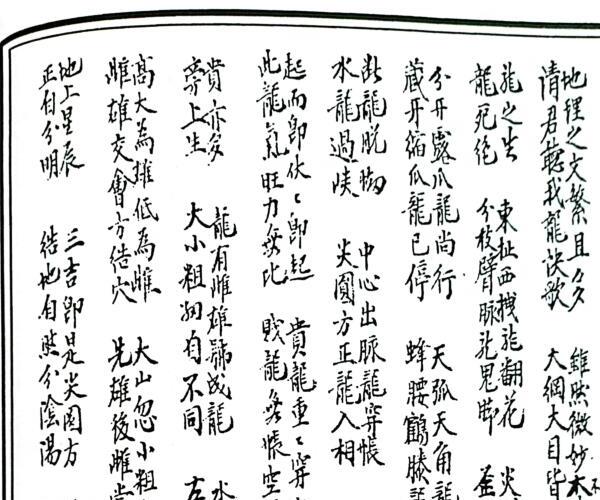 地理之文繁且多 雖然微妙
請君聽我龍訣歌 大綱大目皆
龍之生 東扯西拽龍翻花
龍死絕 分枝劈脉龍鬼脚
分牙露爪龍尚行 天弧天角龍
藏牙縮爪龍已停 蜂腰鶴膝龍
斷龍脫 中心出脉龍穿帳
水龍過峽 尖圓方正龍入相
起而即伏〻即起 貴龍重〻穿
此龍氣旺力無比 賤龍無帳空
貴亦多 龍有雌雄號成龍 水
旁上生 大小粗細自不同 左
高大為雄低為雌 大山忽小粗
雌雄交會方結穴 先雄後雌
地上星辰 三吉即是尖圓方
正自分明 結地自然分陰陽